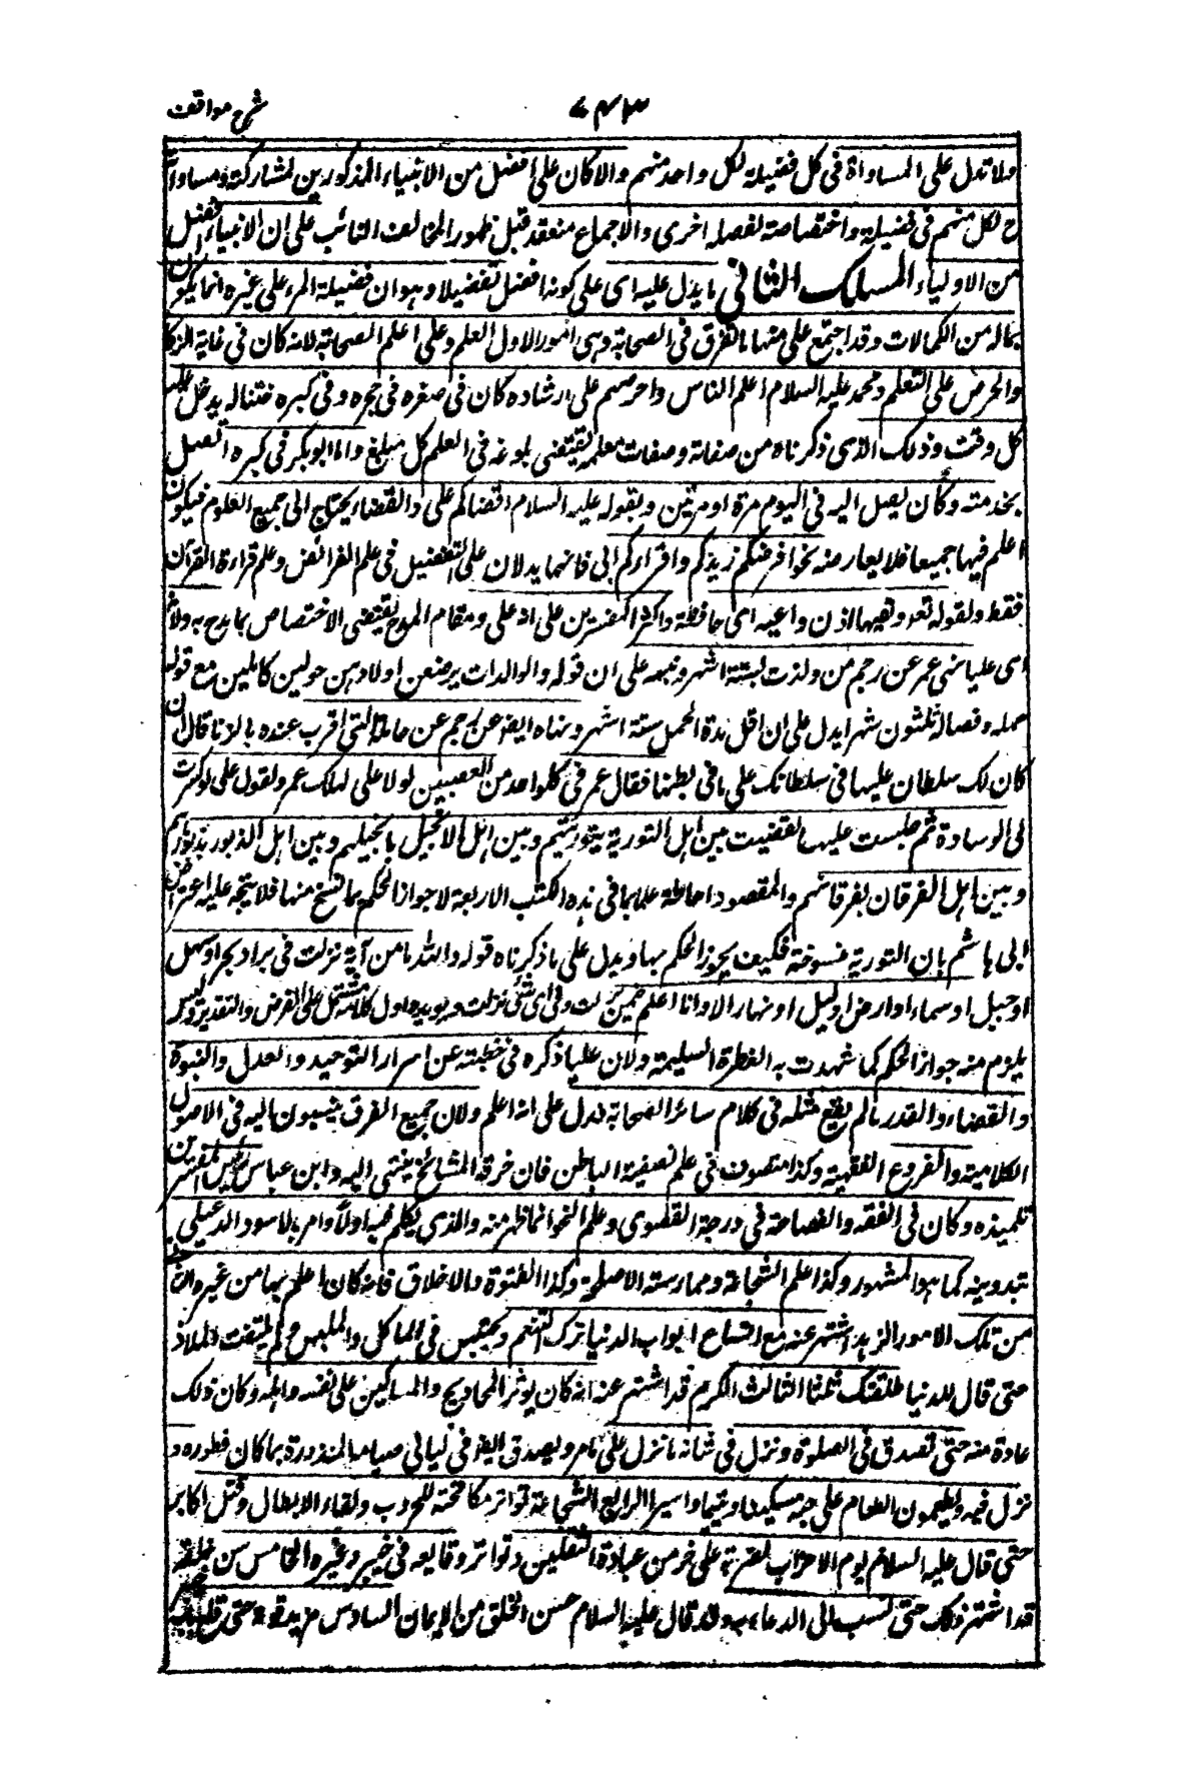 شرح مواقف ٧٤٣
ولا تدل على المساواة فى كل فضيلة لكل واحد منهم والا كان على افضل من الانبياء المذكورين لمشاركته ومساواته
ح لكل منهم فى فضيلة واختصاصه بفضله اخرى والاجماع منعقد قبل ظهور المخالف الثانى على ان الانبياء افضل
من الاولياء المسلك الثانى ما يدل عليه اى على كونه افضل تفضيلا وهو ان فضيلة المرء على غيره انما يكون
بماله من الكمالات وقد اجتمع على منها ما تفرق فى الصحابة وهى امور الاول العلم وعلى اعلم الصحابة لانه كان فى غاية الذكاء
والحرص على التعلم ومحمد عليه السلام اعلم الناس واحرصهم على ارشاده كان فى صغره فى حجره وفى كبره ختنا له يدخل عليه
كل وقت وذلك الذى ذكرناه من صفاته وصفات معلمه يقتضى بلوغه فى العلم كل مبلغ واما ابوبكر فى كبره اتصل
بخدمته وكان يصل اليه فى اليوم مرة او مرتين ولقوله عليه السلام اقضاكم على والقضاء يحتاج الى جميع العلوم فيكون
اعلم فيها جميعا فلا يعارضه نحو افرضكم زيد كم واقراءكم ابى فانهما يدلان على التفضيل فى علم الفرائض وعلم قراءة القرآن
فقط ولقوله تعه وتعيها اذن واعيه اى حافظة واكثر المفسرين على انه على ومقام المدح يقتضى الاختصاص بما مدح به ولانه
اى عليا نهى عمر عن رجم من ولدت لستة اشهر ونبهه على ان قوله والوالدات يرضعن اولادهن حولين كاملين مع قوله
حمله وفصاله ثلثون شهرا يدل على ان اقل مدة الحمل ستة اشهر ونهاه ايضا عن رجم عن حاملة التى اقرب عنده بالزنا قال ان
كان لك سلطان عليها فى سلطانك على ما فى بطنها فقال عمر فى كلواحد من القصيتين لولا على لهلك عمر ولقول على لو كسرت
لى الوسادة ثم جلست عليها لقضيت بين اهل التورية بتوريتهم وبين اهل الانجيل بانجيلهم وبين اهل الذبور بذبورهم
وبين اهل الفرقان بفرقانهم والمقصود احاطة علمه بما فى هذه الكتب الاربعة لا جواز الحكم بما نسخ منها فلا يتجه عليه اعتراض
ابى هاشم بان التورية منسوخة فكيف يجوز الحكم بها ويدل على ما ذكرناه قوله والله ما من آية نزلت فى بر او بحر او سهل
او جبل او سماء او ارض او ليل او نهار الا وانا اعلم فيمن نزلت وفى اى شئ نزلت ويؤيده اول كلامه مشتمل على الفرض والتقدير وليس
يلزم منه جواز الحكم كما شهدت به الفطرة السليمة ولان عليا ذكره فى خطبته عن اسرار التوحيد والعدل والنبوة
والقضاء والقدر ما لم يقع مثله فى كلام سائر الصحابة فدل على انه اعلم ولان جميع الفرق ينتسبون اليه فى الاصول
الكلامية والفروع الفقهية وكذا متصوف فى علم تصفية الباطن فان خرقة المشائخ ينتهى اليه وابن عباس رئيس المفسرين
تلميذه وكان فى الفقه والفصاحة فى درجة القصوى وعلم النحو انما ظهر منه والذى تكلم فيه اولا وامر بالاسود الدئيلى
بتدوينه كما هو المشهور وكذا علم الشجاعة وممارسة الاسلحة وكذا الفتوة والاخلاق فانه كان اعلم بها من غيره الثانى
من تلك الامور الزهد اشتهر عنه مع اتساع ابواب الدنيا ترك التنعم وتخشن فى الماكل والملبس ولم يلتفت الملاذ
حتى قال للدنيا طلقتك ثلثا الثالث الكرم قد اشتهر عنه انه كان يوثر المحاويج والمساكين على نفسه واهله وكان ذلك
عادة منه حتى تصدق فى الصلوة ونزل فى شانه ما نزل على ما مر ويصدق ايضا فى ليالى صيام المنذورة بما كان فطوره و
نزل فيه ويطعمون الطعام على حبه مسكينا ويتيما واسيرا الرابع الشجاعة تواتر مكافحته للحروب ولقاء الابطال وقتل اكابر
حتى قال عليه السلام يوم الاحزاب لضربة على خير من عبادة الثقلين وتواتر وقايعه فى خيبر وغيره الخامس حسن خلقه
قد اشتهر ذلك حتى نسب الى الدعابه وقد قال عليه السلام حسن الخلق من الايمان السادس مزيد قوته حتى قلع باب